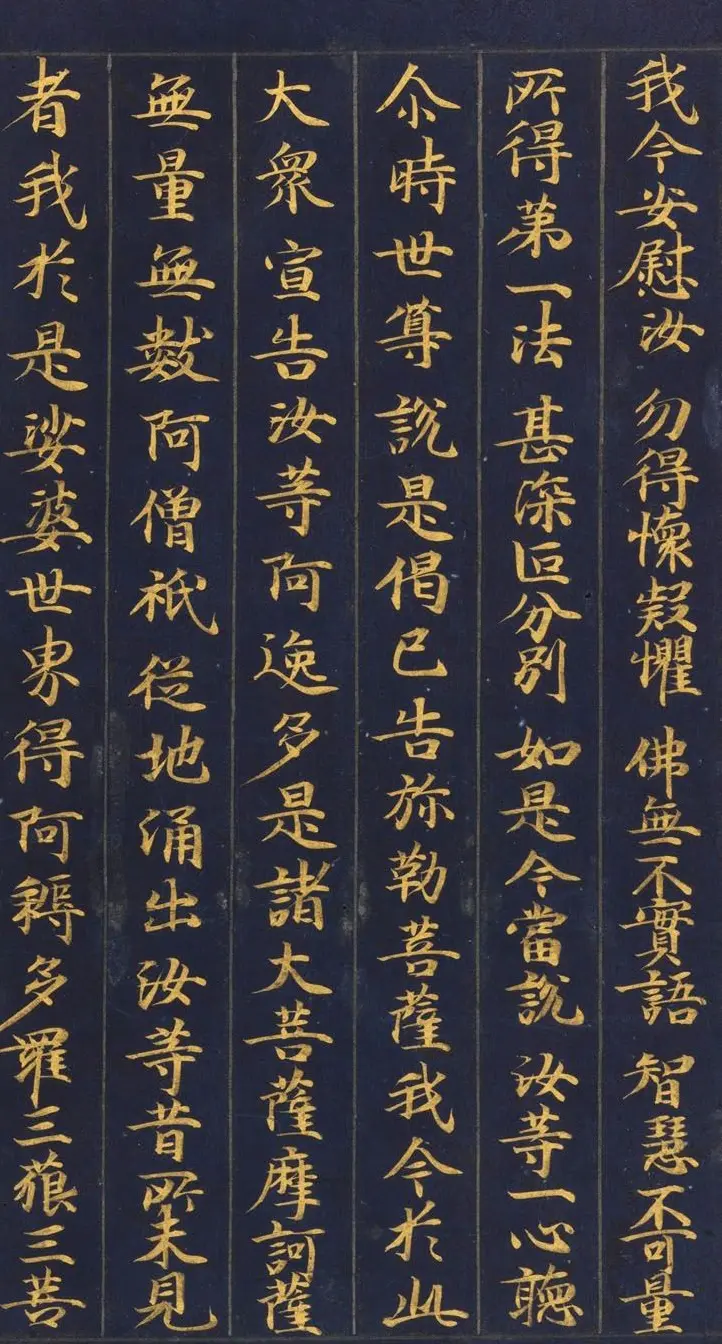 我今安慰汝　勿得懷疑懼　佛無不實語　智慧不可量
所得第一法　甚深叵分別　如是今當說　汝等一心聽
尒時世尊說是偈已告弥勒菩薩我今於此
大衆宣告汝等阿逸多是諸大菩薩摩訶薩
無量無數阿僧祇從地涌出汝等昔所未見
者我於是娑婆世界得阿耨多羅三藐三菩